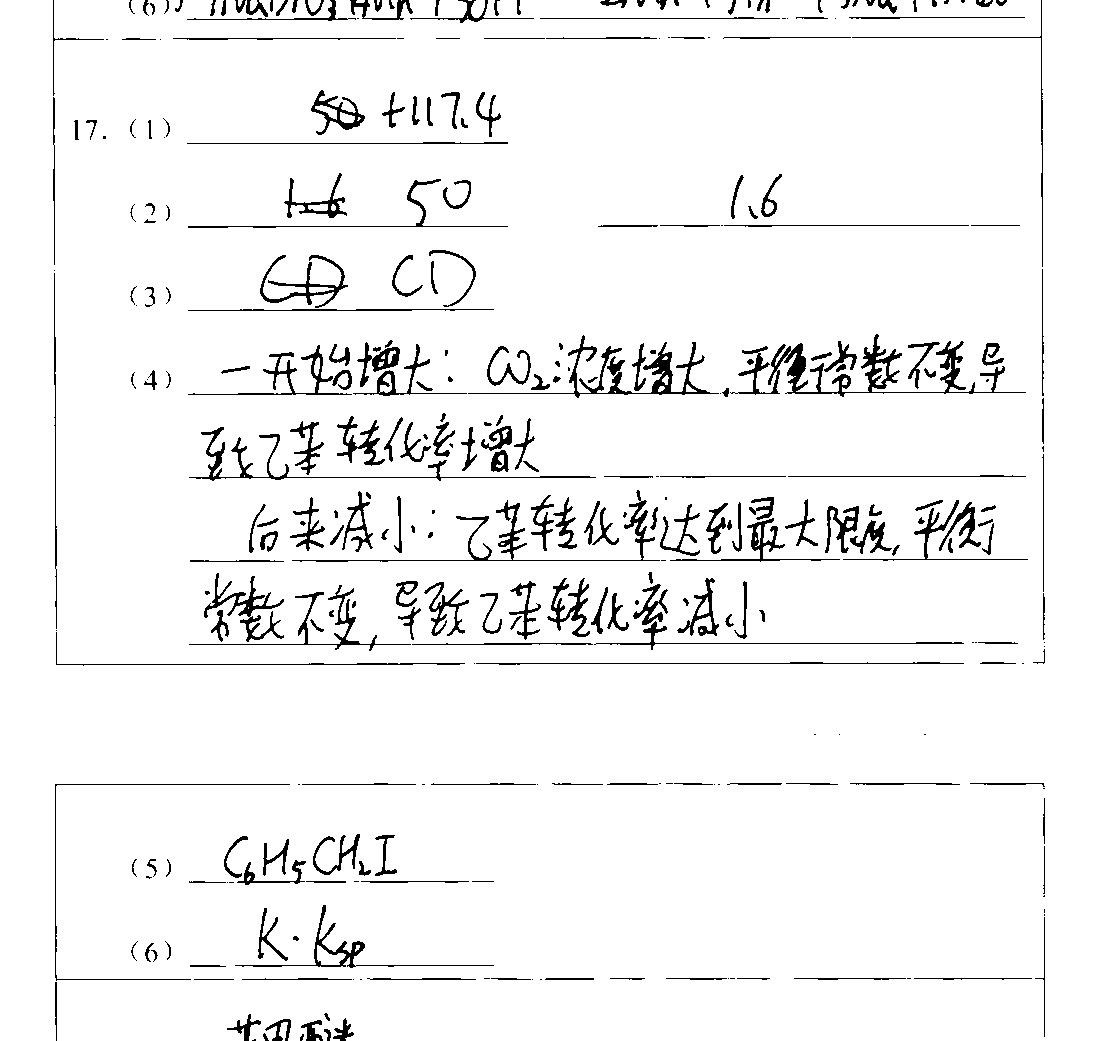 (6)
17. (1) +117.4
(2) 50 1.6
(3) CD CD
(4) 一开始增大：CO₂浓度增大，平衡常数不变，导
致乙苯转化率增大
后来减小：乙苯转化率达到最大限度，平衡
常数不变，导致乙苯转化率减小
(5) C₆H₅CH₂I
(6) K·Ksp